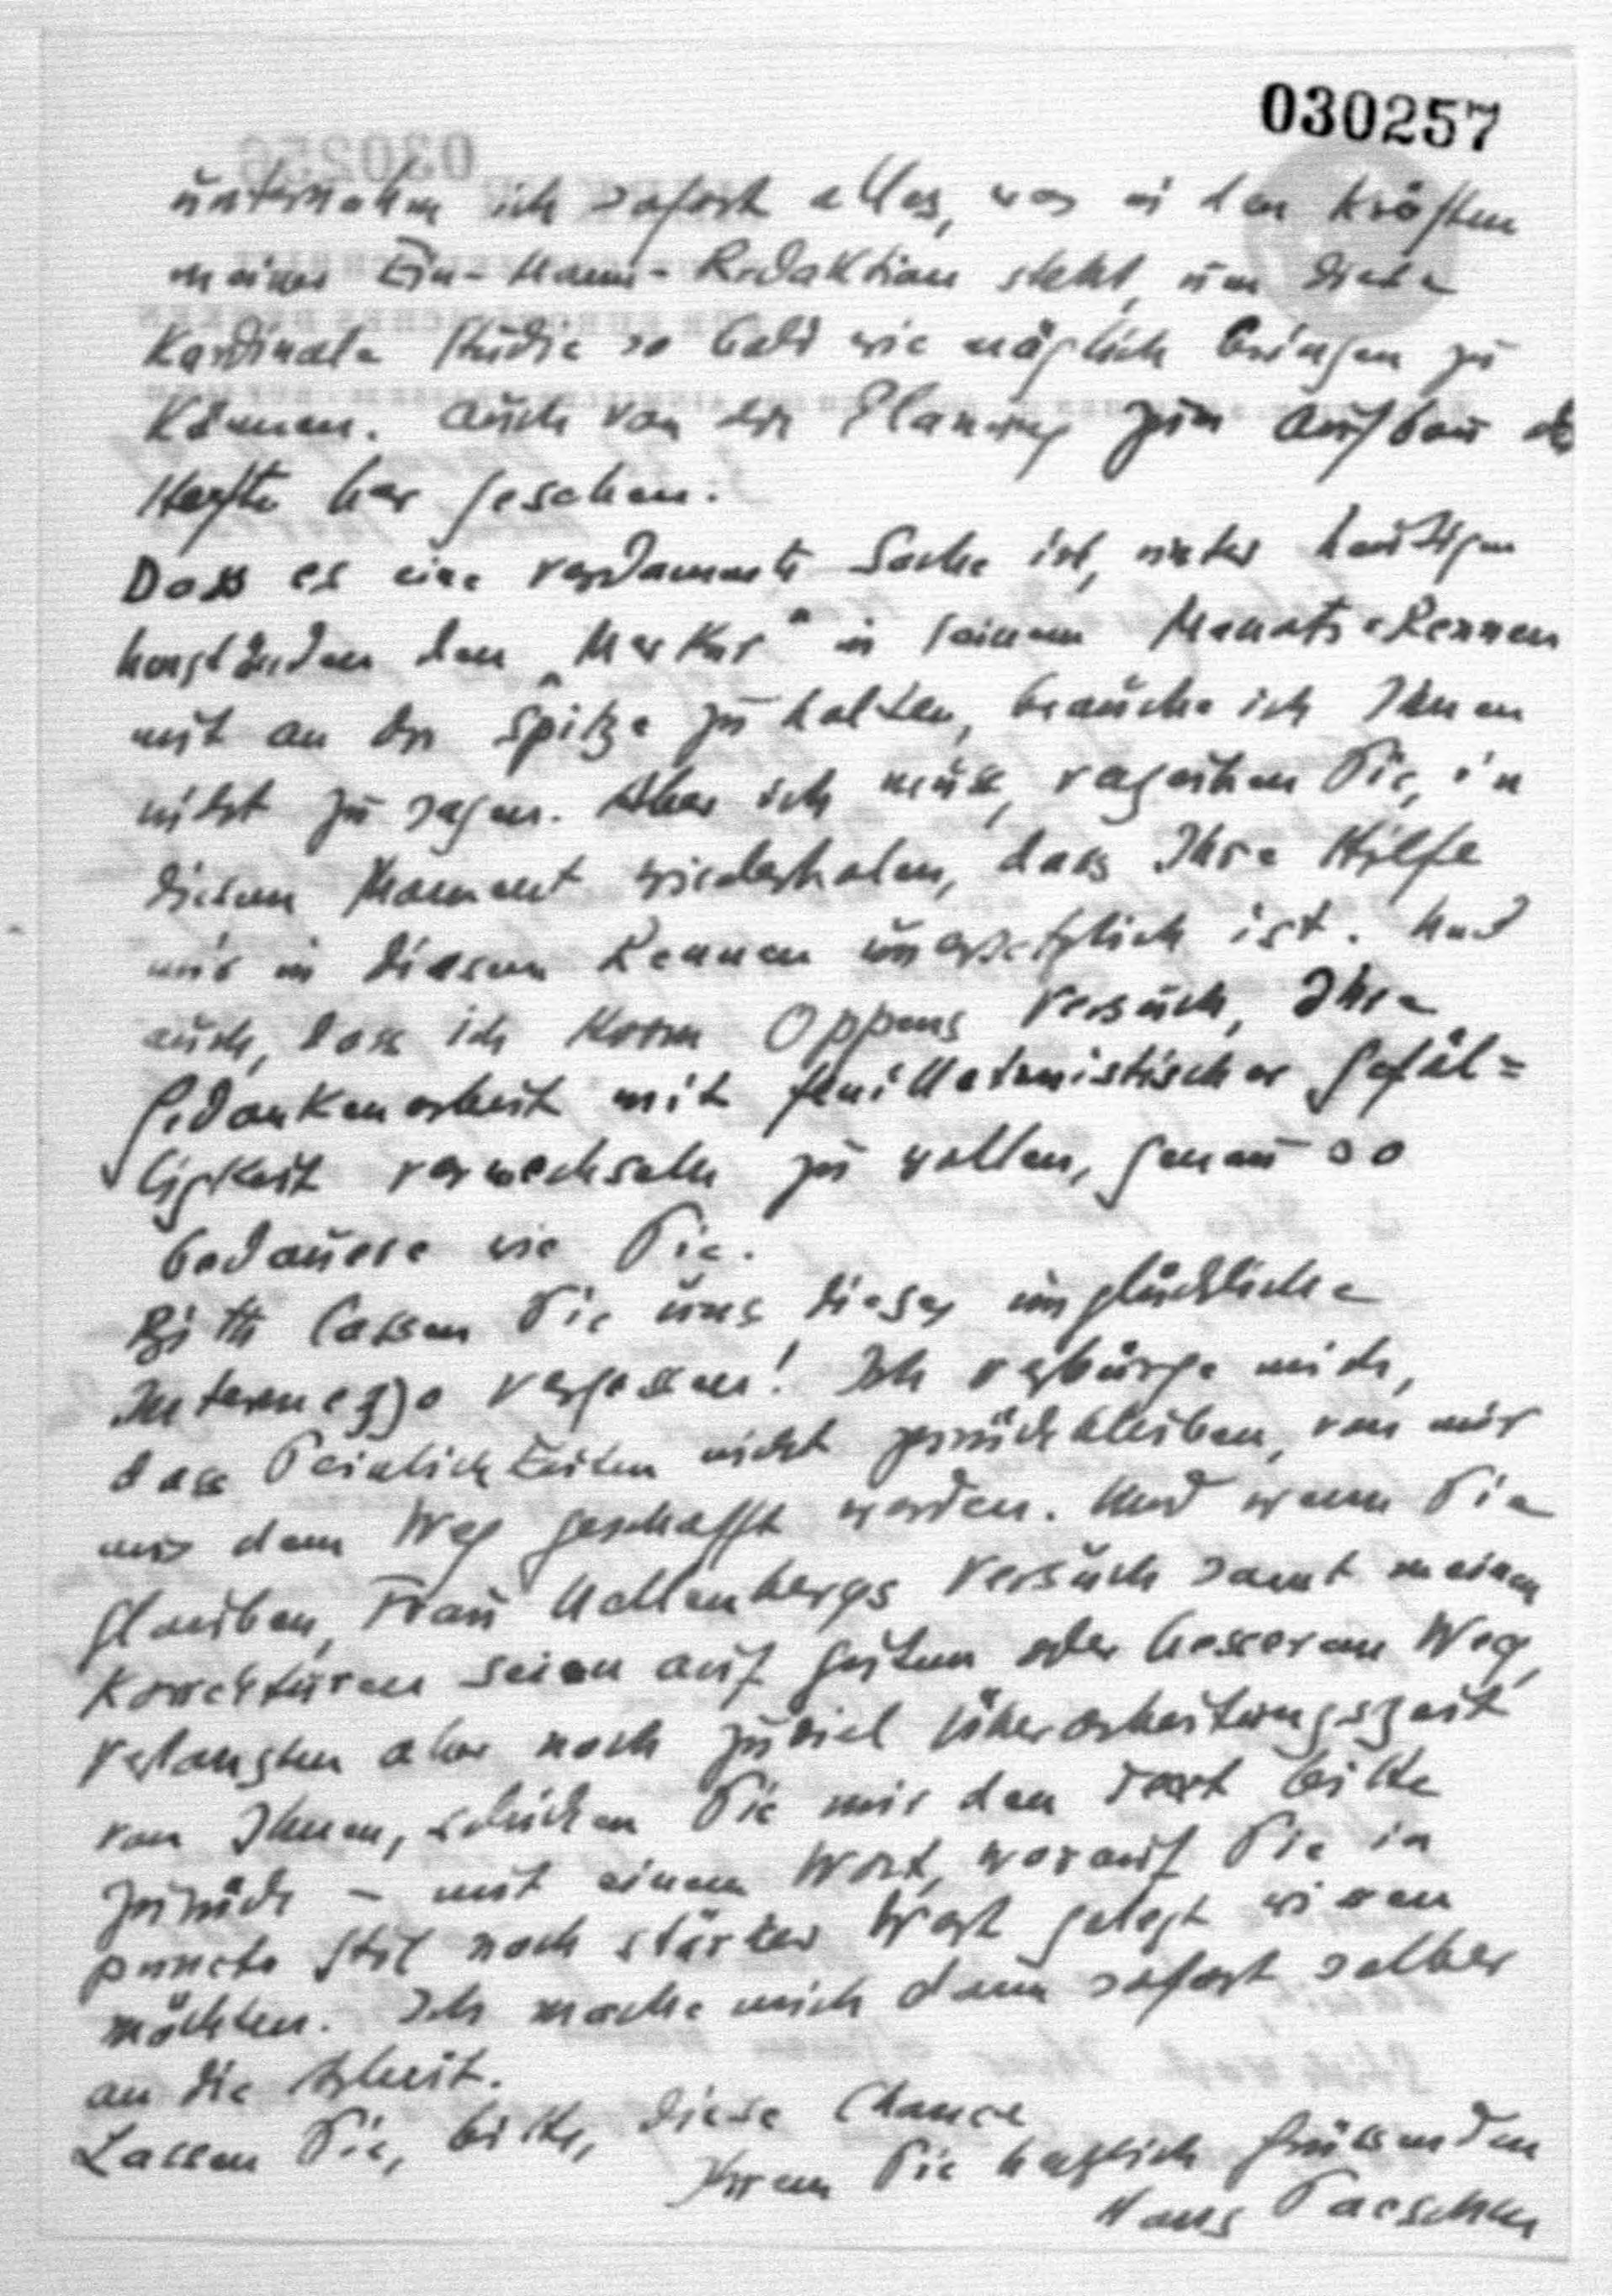 030257
unternahm ich sofort alles, was in den Kräften
meiner Ein-Mann-Redaktion steht, um diese
Kardinale Studie so bald wie möglich bringen zu
Können. Auch von der Planung zum Aufbau des
Hefts her gesehen.
Dass es eine verdammte Sache ist, unter heutigen
Umständen den „Merkur" in seinem Monats-Rennen
mit an der Spitze zu halten, brauche ich Ihnen
nicht zu sagen. Aber ich muss, verzeihen Sie, in
diesem Moment wiederholen, dass Ihre Hilfe
mir in diesem Rennen unersetzlich ist. Und
auch, dass ich Herrn Oppens Versuch, Ihre
Gedankenarbeit mit feuilletonistischer Gefäl=
ligkeit verwechseln zu wollen, genau so
bedauere wie Sie.
Bitte lassen Sie uns dieses unglückliche
Intermezzo vergessen! Ich verbürge mich,
dass Peinlichkeiten nicht zurückbleiben, von mir
aus dem Weg geschafft werden. Und wenn Sie
glauben, Frau Mollenbergs Versuch samt meinen
Korrekturen seien auf gutem oder besserem Weg,
verlangten aber noch zuviel Überarbeitungszeit
von Ihnen, schicken Sie mir den Text bitte
zurück – mit einem Wort, worauf Sie in
puncto Stil noch stärker Wert gelegt wissen
möchten. Ich mache mich dann sofort selber
an die Arbeit.
Lassen Sie, bitte, diese Chance
Ihrem Sie herzlich grüssenden
Hans Paeschke